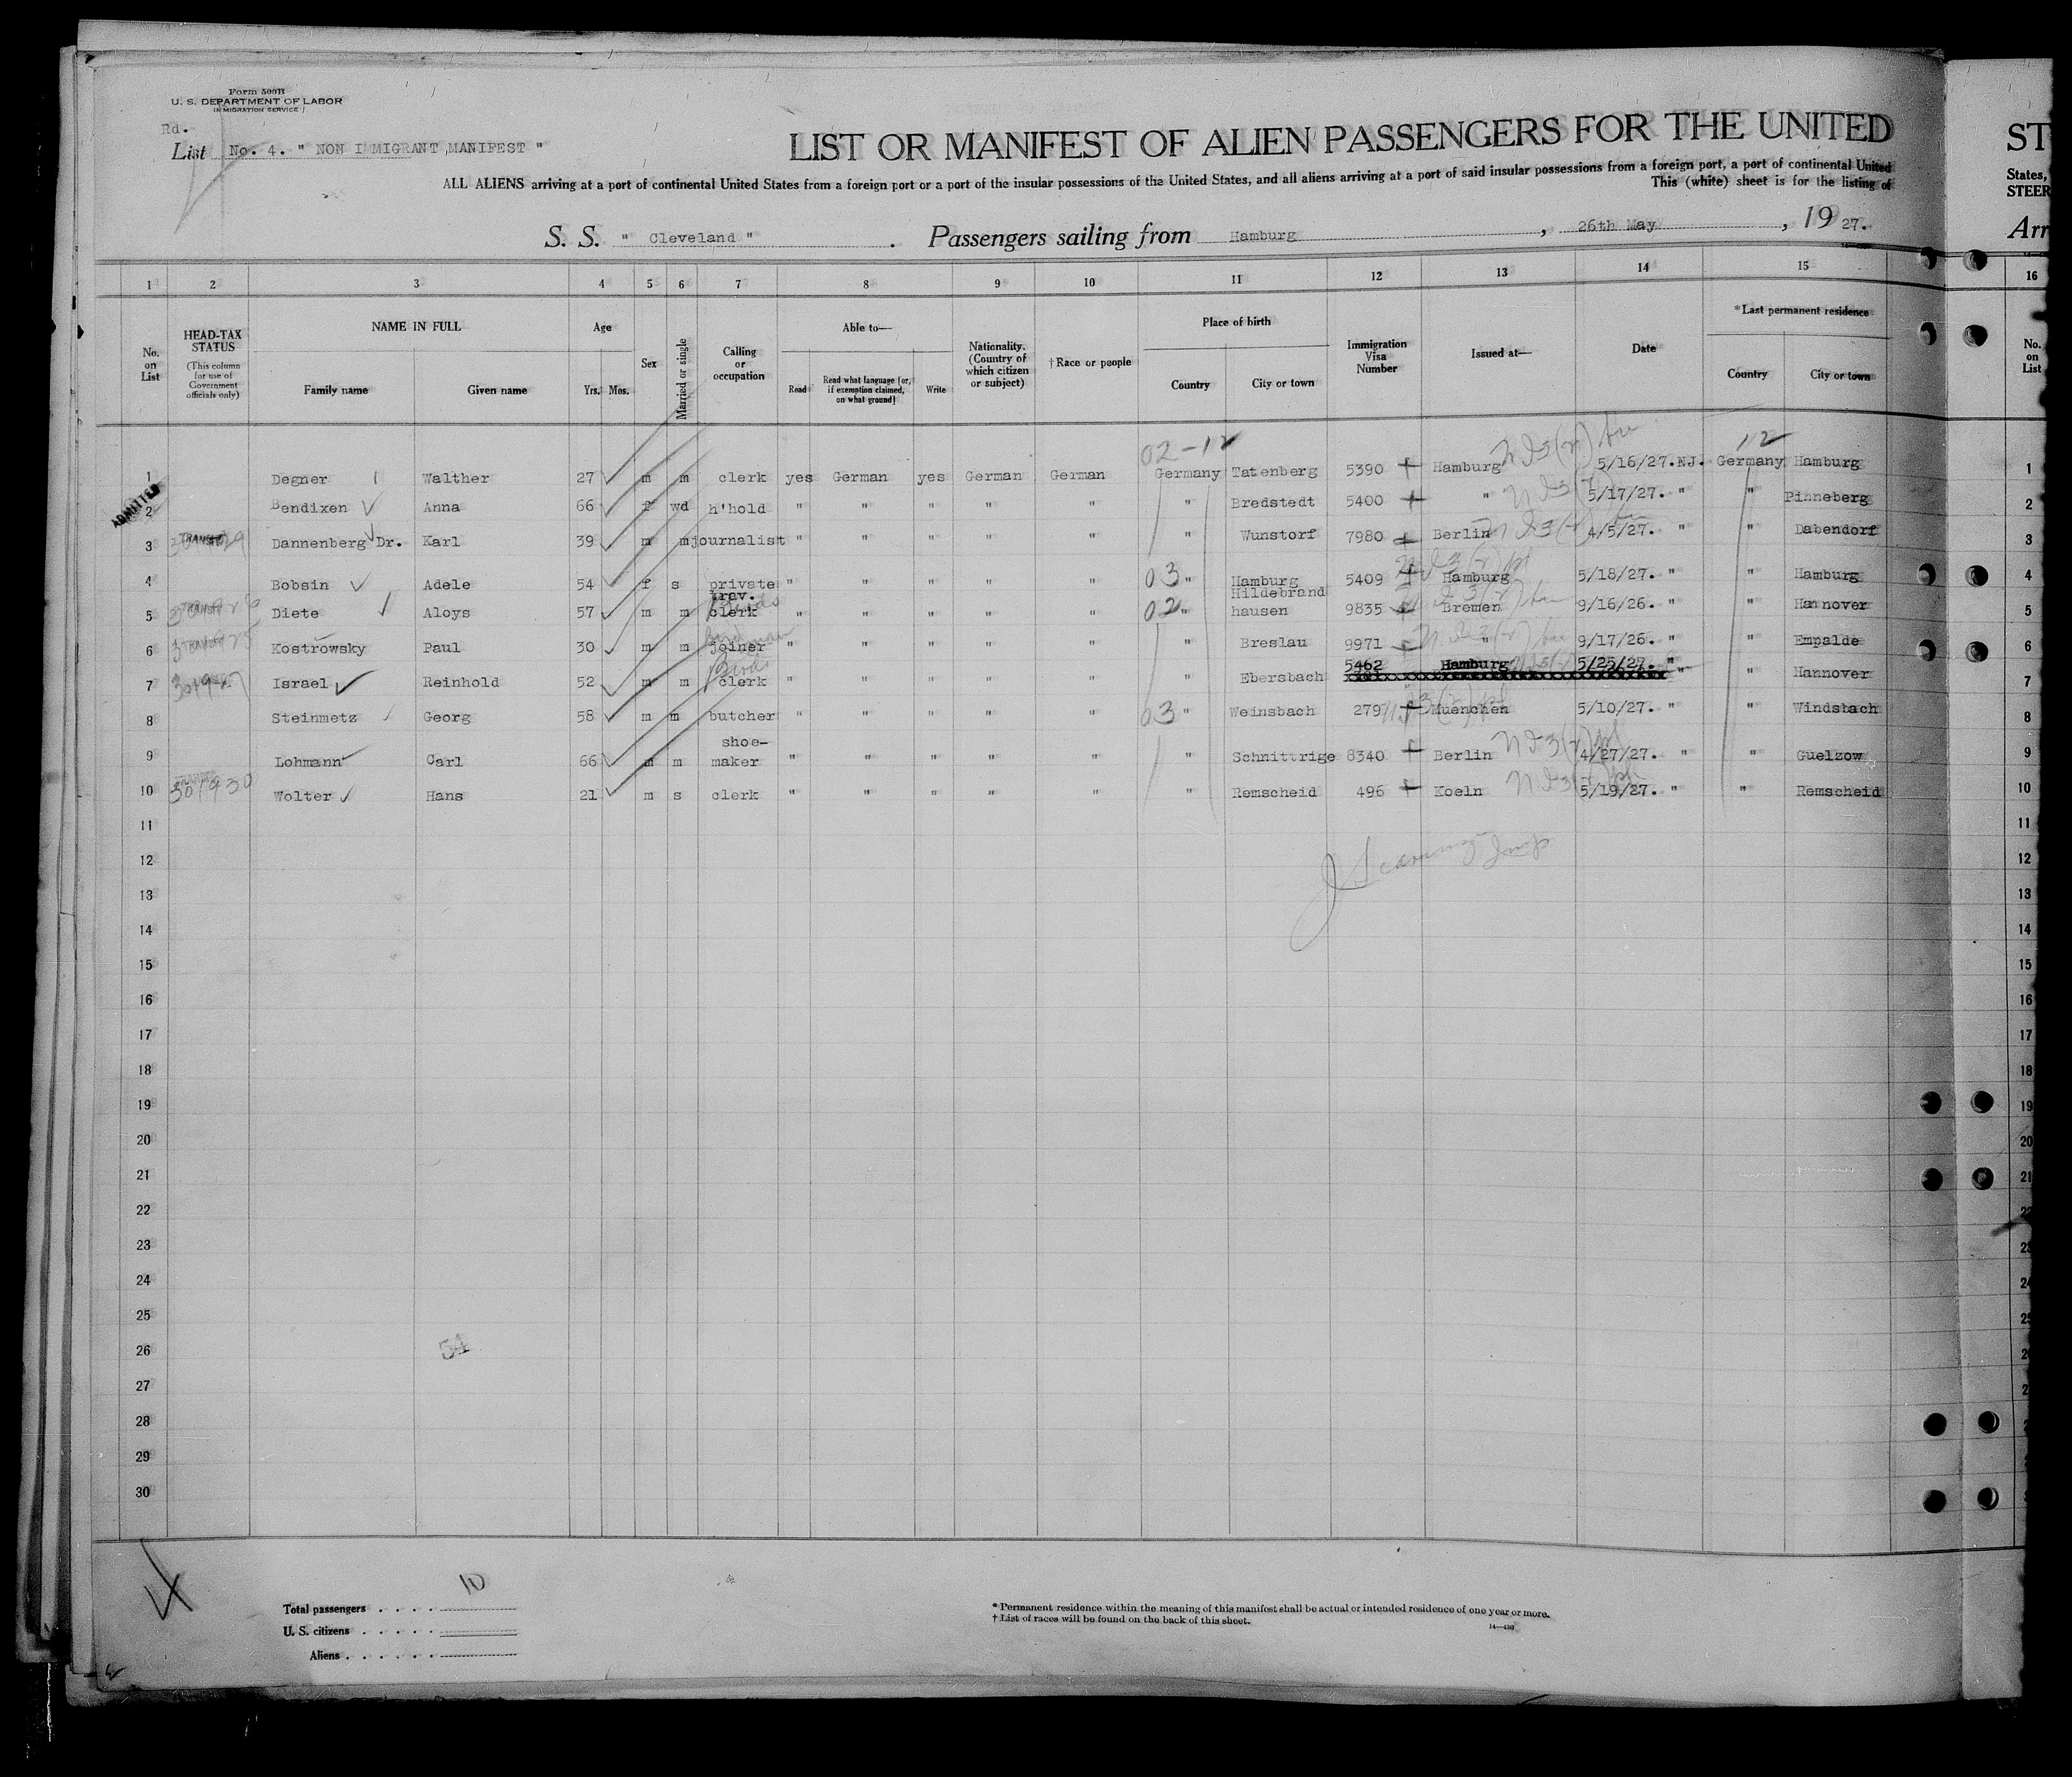 Form 500B
U. S. DEPARTMENT OF LABOR
IMMIGRATION SERVICE
Rd.
List No. 4. " NON IMMIGRANT MANIFEST "
LIST OR MANIFEST OF ALIEN PASSENGERS FOR THE UNITED
ST
ALL ALIENS arriving at a port of continental United States from a foreign port or a port of the insular possessions of the United States, and all aliens arriving at a port of said insular possessions from a foreign port, a port of continental United
States,
This (white) sheet is for the listing of
STEER
S. S. " Cleveland " . Passengers sailing from Hamburg , 26th May , 19 27.
Arr
1 2 3 4 5 6 7 8 9 10 11 12 13 14 15 16
No. on List
HEAD-TAX STATUS
(This column for use of Government officials only)
NAME IN FULL
Family name Given name
Age
Yrs. Mos.
Sex
Married or single
Calling or occupation
Able to—
Read
Read what language [or, if exemption claimed, on what ground]
Write
Nationality. (Country of which citizen or subject)
†Race or people
Place of birth
Country City or town
Immigration Visa Number
Issued at—
Date
*Last permanent residence
Country City or town
No. on List
02-12 12
1 Degner Walther 27 m m clerk yes German yes German German Germany Tatenberg 5390 Hamburg 5/16/27. NJ. Germany Hamburg 1
ADMITTED
2 Bendixen Anna 66 f wd h'hold " " " " " " Bredstedt 5400 " 5/17/27. " " Pinneberg 2
3 TRANSIT Dannenberg Dr. Karl 39 m m journalist " " " " " " Wunstorf 7980 Berlin 4/5/27. " " Dabendorf 3
4 Bobsin Adele 54 f s private " " " " " 03 " Hamburg 5409 Hamburg 5/18/27. " " Hamburg 4
5 TRANSIT Diete Aloys 57 m m trav. clerk " " " " " 02 " Hildebrand hausen 9835 Bremen 9/16/26. " " Hannover 5
6 TRANSIT Kostrowsky Paul 30 m m joiner " " " " " " Breslau 9971 " 9/17/26. " " Empalde 6
7 Israel Reinhold 52 m m clerk " " " " " " Ebersbach 5462 Hamburg 5/25/27. " " " Hannover 7
8 Steinmetz Georg 58 m m butcher " " " " " 03 " Weinsbach 279 Muenchen 5/10/27. " " Windsbach 8
9 Lohmann Carl 66 m m shoe-maker " " " " " " Schnittrige 8340 Berlin 4/27/27. " " Guelzow 9
10 Wolter Hans 21 m s clerk " " " " " " Remscheid 496 Koeln 5/19/27. " " Remscheid 10
11 11
12 12
13 13
14 14
15 15
16 16
17 17
18 18
19 19
20 20
21 21
22 22
23 23
24 24
25 25
26 54
27
28
29
30
Total passengers . . . . 10
U. S. citizens . . . . .
Aliens . . . . . .
* Permanent residence within the meaning of this manifest shall be actual or intended residence of one year or more.
† List of races will be found on the back of this sheet.